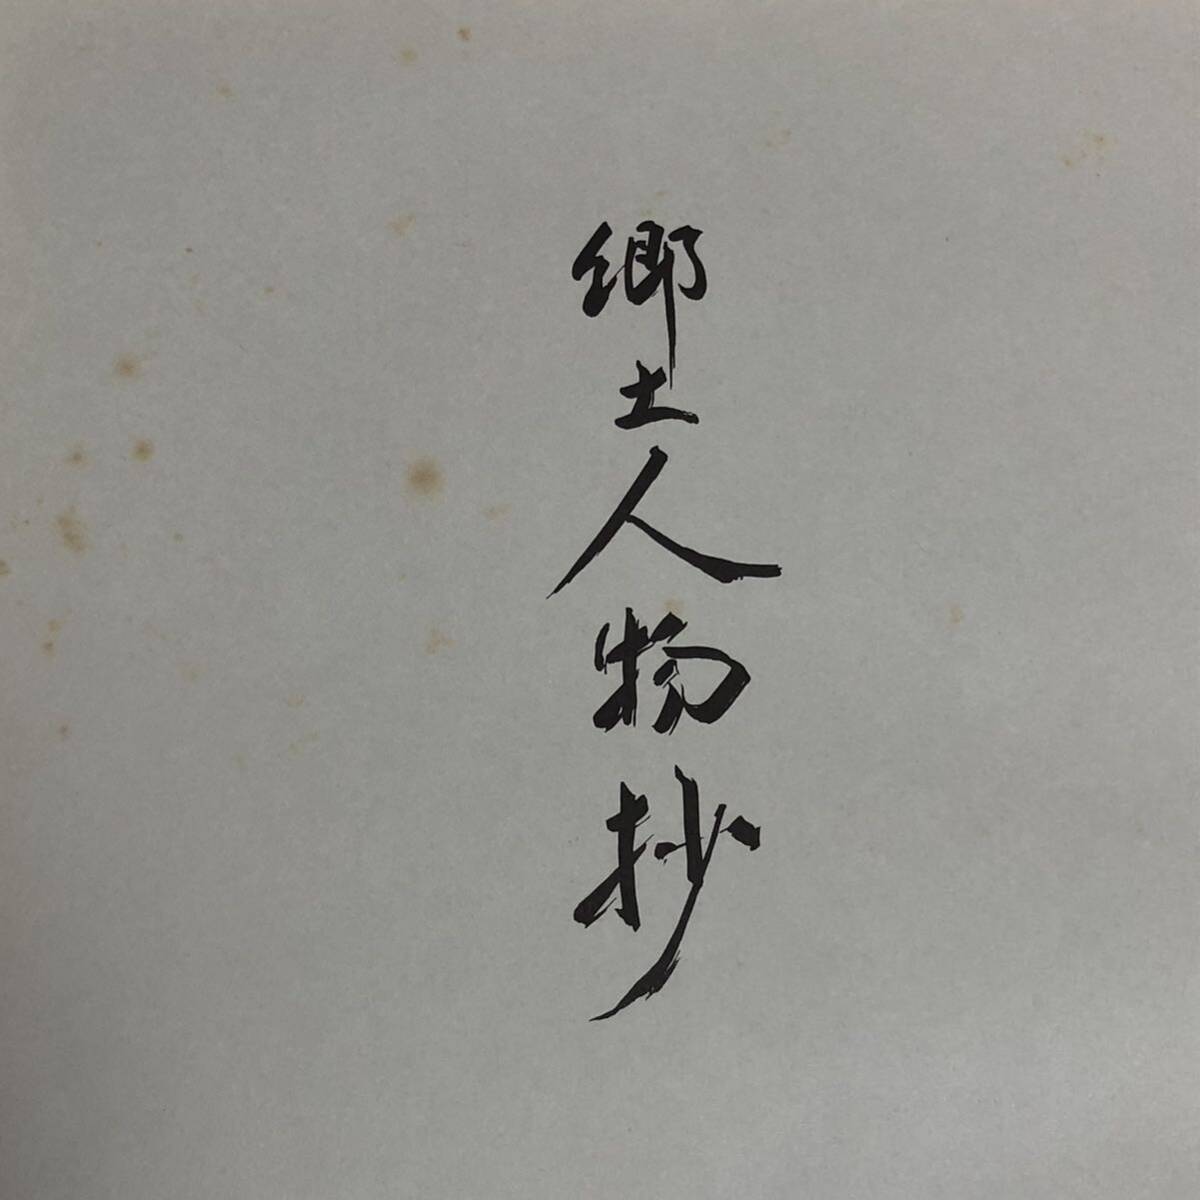 郷土人物抄